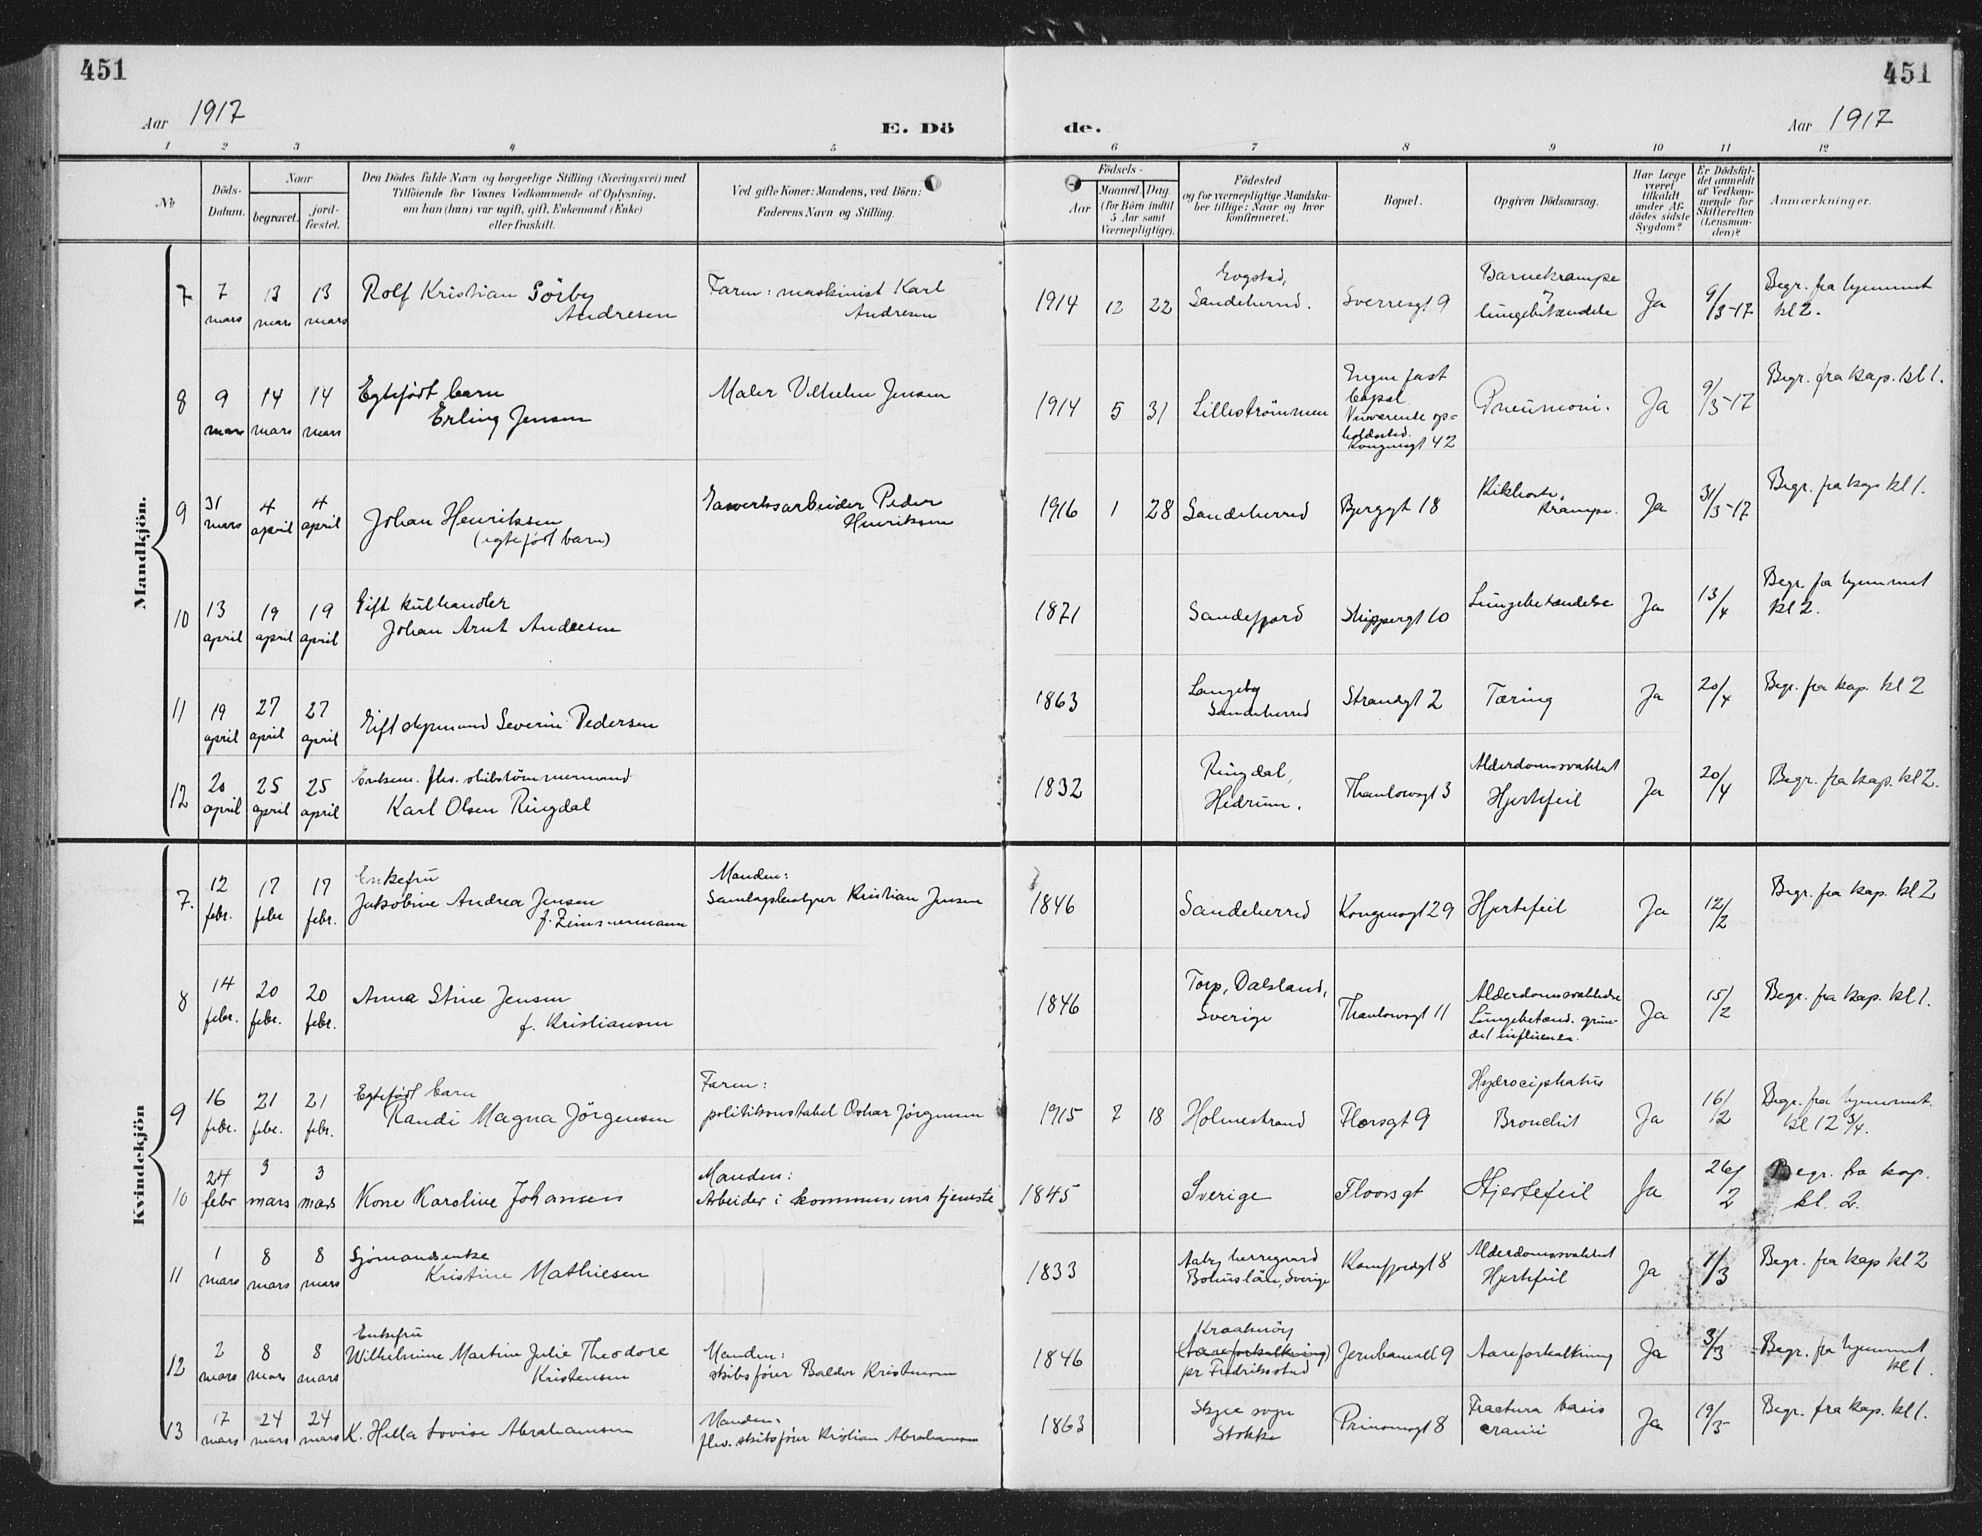 451
451
Aar 1917
E. Dö
de.
Aar 1917
1 2 3 4 5 6 7 8 9 10 11 12
No
Döds-
Datum.
Naar
begravet.
jord-
fæstet.
Den Dödes fulde Navn og borgerlige Stilling (Næringsvei) med
Tilföiende for Voxnes Vedkommende af Oplysning,
om han (hun) var ugift, gift, Enkemand (Enke)
eller fraskilt.
Ved gifte Koner: Mandens, ved Börn:
Faderens Navn og Stilling.
Födsels-
Aar
Maaned. Dag.
(for Börn indtil
5 Aar samt
Værnepligtige).
Födested
og for værnepligtige Mandska-
ber tillige: Naar og hvor
konfirmeret.
Bopæl.
Opgiven Dödsaarsag.
Har Læge
været
tilkaldt
under Af-
dödes sidste
Sygdom?
Er Dödsfal-
det anmeldt
af Vedkom-
mende for
Skifteretten
(Lensman-
den)?
Anmærkninger.
Mandkjön.
7
7 mars
13 mars
13 mars
Rolf Kristian Sörby
Andresen
Faren: maskinist Karl
Andresen
1914 12 22
Sandeherred.
Sverresgt 9
Barnekrampe
lungebetændelse
Ja
9/3-17
Begr. fra hjemmet
kl 2.
8
9 mars
14 mars
14 mars
Egtefödt barn
Erling Jensen
Maler Vilhelm Jensen
1914 5 31
Lilleströmmen
Ingen fast
bopæl.
Nuværende op-
holdssted.
Kongensgt 42
Pneumoni.
Ja
9/3-17
Begr. fra kap. kl 1.
9
31 mars
4 april
4 april
Johan Henriksen
(egtefödt barn)
Gasverksarbeider Peder
Henriksen
1916 1 28
Sandeherred
Bjerggt 18
Kikhoste,
Krampe.
Ja
31/3-17
Begr. fra kap kl 1.
10
13 april
19 april
19 april
Gift kulhandler
Johan Arnt Andersen
1871
Sandefjord
Skippergt 10
Lungebetændelse
Ja
13/4
Begr. fra hjemmet
kl 2.
11
19 april
27 april
27 april
Gift sjømand Severin Pedersen
1863
Langeby
Sandeherred
Strandgt 2
Tæring
Ja
20/4
Begr. fra kap. kl 2
12
20 april
25 april
25 april
Enkem. fhv. skibstömmermand
Karl Olsen Ringdal
1832
Ringdal,
Hedrum.
Thaulowsgt 3
Alderdomssvakhet
Hjertefeil
Ja
20/4
Begr. fra kap. kl 2.
Kvindekjön
7.
12 febr.
17 febr
17 febr.
Enkefru
Jakobine Andrea Jensen
f. Zimmermann
Manden:
Samlagsbestyrer Kristian Jensen
1846
Sandeherred
Kongensgt 29
Hjertefeil
Ja
12/2
Begr. fra kap. kl 2
8
14 febr.
20 febr.
20 febr.
Anna Stine Jensen
f. Kristiansen
1846
Torp, Dalsland,
Sverige
Thaulowsgt 11
Alderdomssvakhet
Lungebetænd. grun-
det influenza.
Ja
15/2
Begr. fra kap. kl 1.
9
16 febr.
21 febr.
21 febr.
Egtefödt barn
Randi Magna Jörgensen
Faren:
politikonstabel Oskar Jörgensen
1915 7 18
Holmestrand
Florsgt 9
Hydrocephalus
Bronchit
Ja
16/2
Begr. fra hjemmet.
kl 12 3/4.
10
24 febr
3 mars
3 mars
Kone Karoline Johansen
Manden:
Arbeider i kommunens tjeneste
1845
Sverige
Floorsgt
Hjertefeil
Ja
26/2
Begr. fra kap.
kl. 2.
11
1 mars
8 mars
8 mars
Sjömandsenke
Kristine Mathiesen
1833
Aaby herregaard
Bohuslän, Sverige
Kamfjordgt 8
Alderdomssvakhet
Hjertefeil
Ja
1/3
Begr. fra kap kl 2
12
2 mars
8 mars
8 mars
Enkefru
Wilhelmine Martine Julie Theodore
Kristensen
Manden:
skibsförer Baldur Kristensen
1846
Kraakeröy
(Aareforkalkning)
pr Fredriksstad
Jernbanealle 9
Aareforkalkning
Ja
3/3
Begr. fra hjemmet
kl 1.
13
17 mars
24 mars
24 mars
K. Hella Lovise Abrahamsen
Manden:
fhv. skibsförer Kristian Abrahamsen
1863
Skjee sogn
Stokke
Prinsensgt 8
Fractura basis
cranii
Ja
19/3
Begr. fra kap. kl 1.